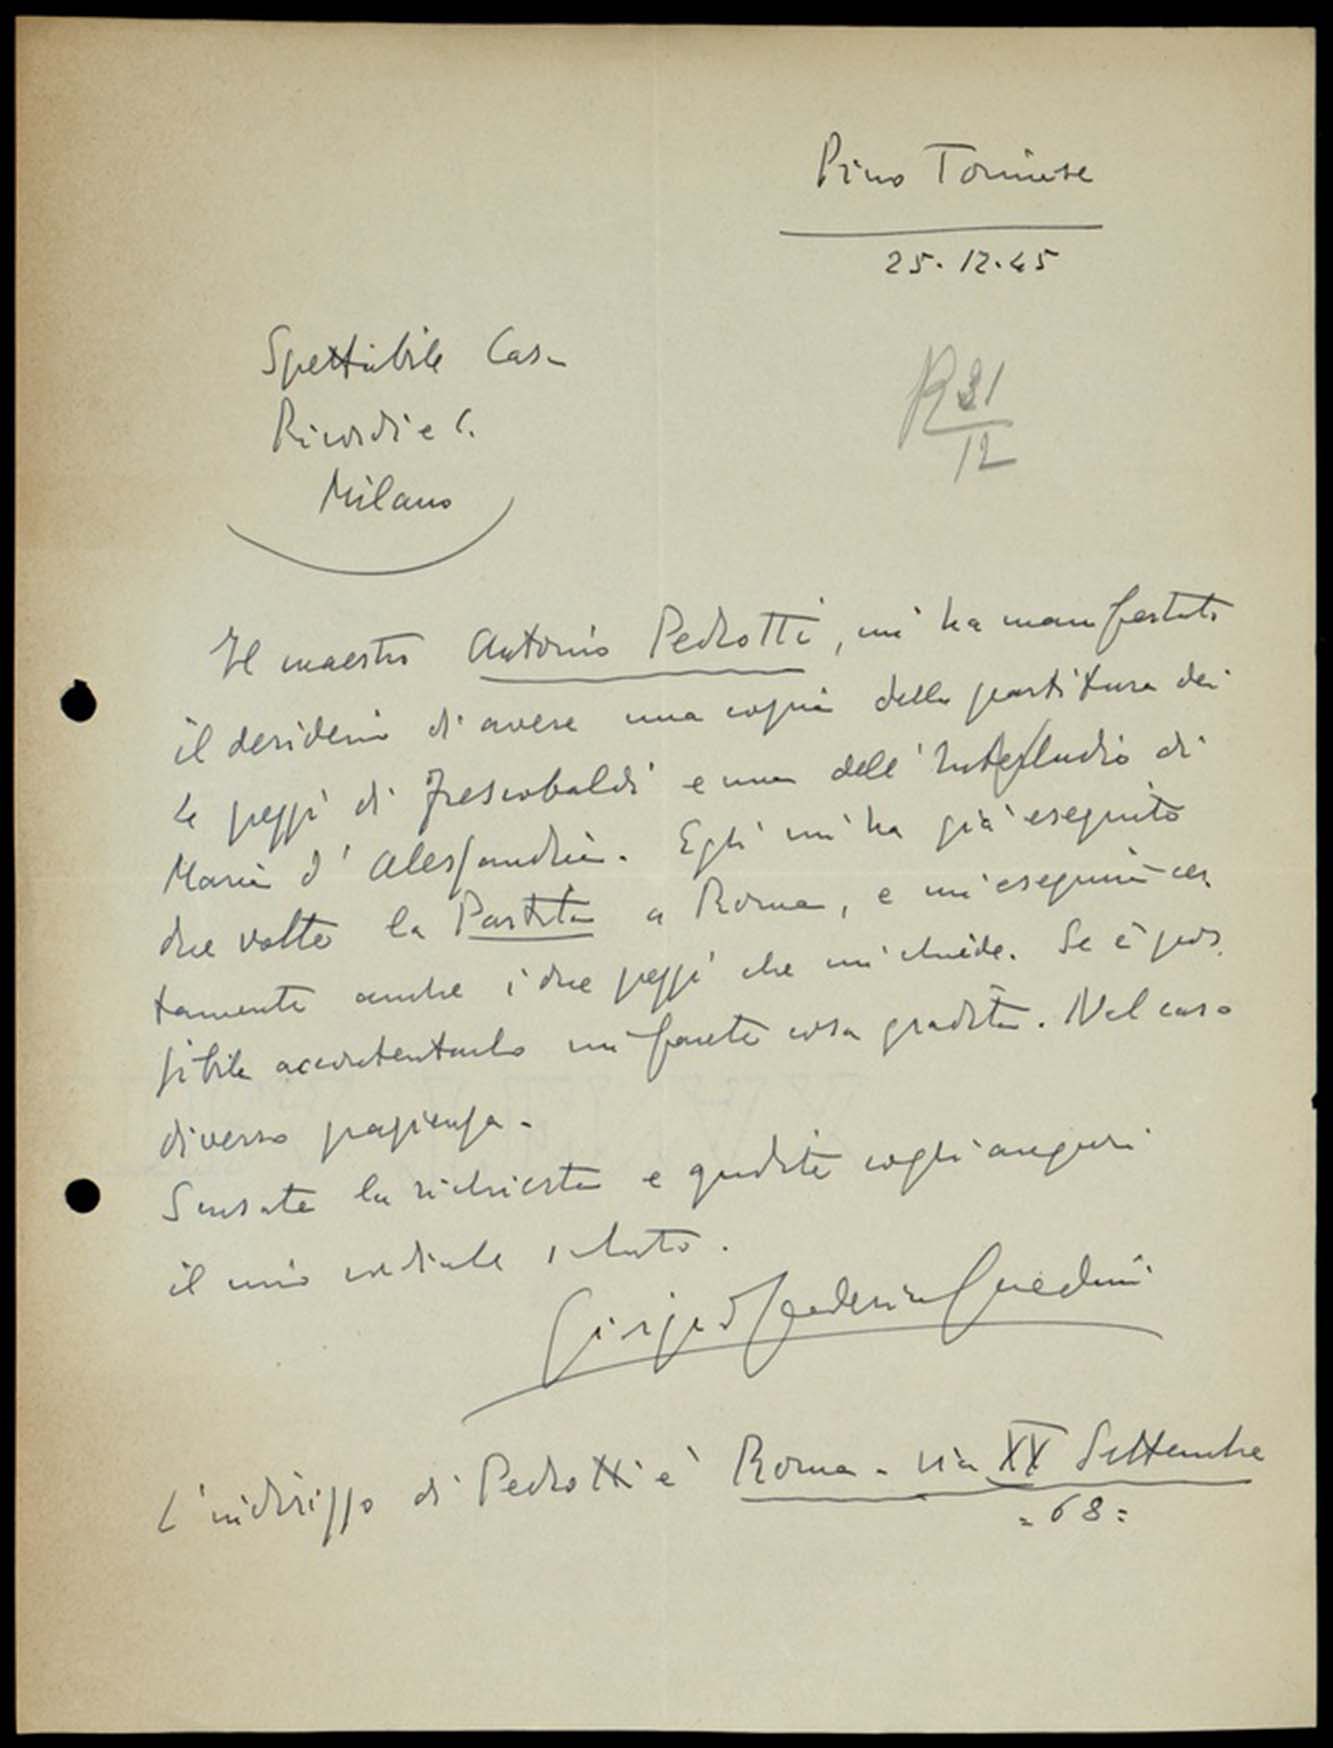 Pino Torinese
25.12.45
Spettabile Casa
Ricordi e C.
Milano
R 31
12
Il maestro Antonio Pedrotti, mi ha manifestato
il desiderio di avere una copia della partitura dei
4 pezzi di Frescobaldi e una dell'Interludio di
Maria d'Alessandria. Egli mi ha già eseguito
due volte la Partita a Roma, e mi eseguirà cer
tamente anche i due pezzi che mi chiede. Se è pos
sibile accontentarlo mi farete cosa gradita. Nel caso
diverso pazienza.
Scusate la richiesta e gradite cogli auguri
il mio cordiale saluto.
Giorgio Federico Ghedini
L'indirizzo di Pedrotti è Roma - via XX Settembre
= 68 =